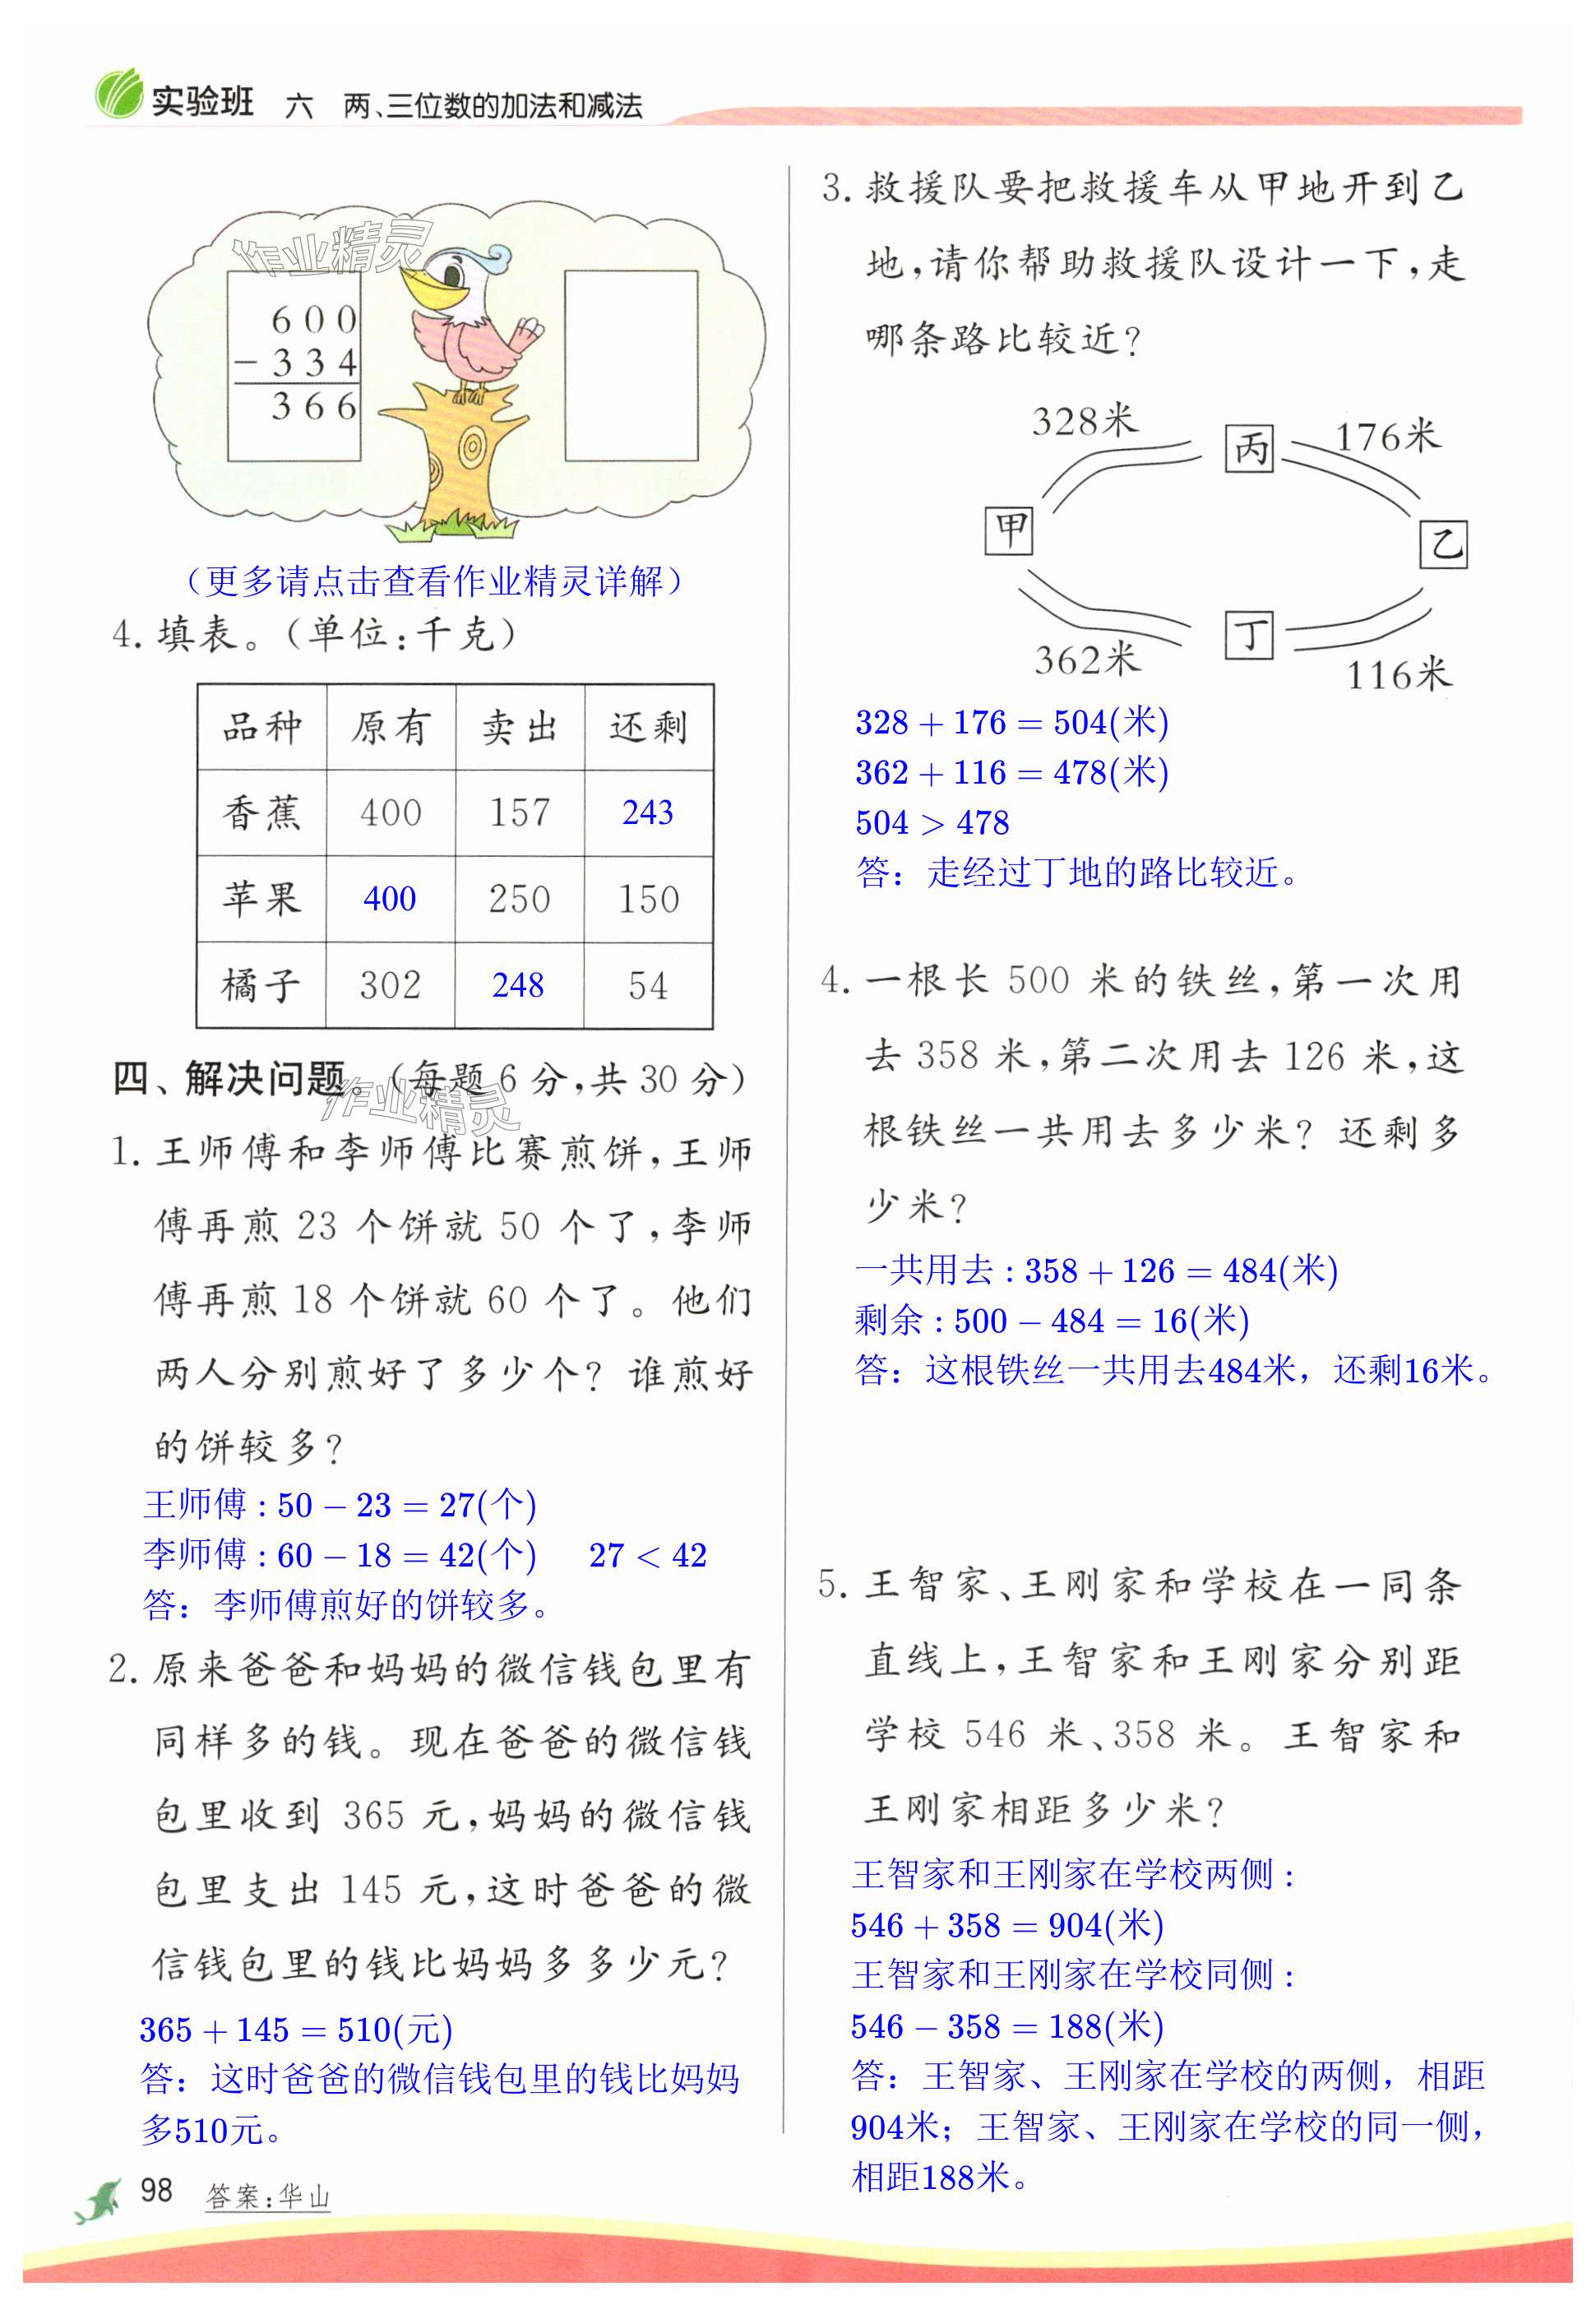 实验班 六 两、三位数的加法和减法
作业精灵
600
- 334
366
（更多请点击查看作业精灵详解）
4. 填表。（单位:千克）
品种 原有 卖出 还剩
香蕉 400 157 243
苹果 400 250 150
橘子 302 248 54
四、解决问题。（每题6分,共30分）
作业精灵
1. 王师傅和李师傅比赛煎饼,王师
傅再煎 23 个饼就 50 个了,李师
傅再煎 18 个饼就 60 个了。他们
两人分别煎好了多少个？谁煎好
的饼较多？
王师傅 : 50 − 23 = 27(个)
李师傅 : 60 − 18 = 42(个) 27 < 42
答：李师傅煎好的饼较多。
2. 原来爸爸和妈妈的微信钱包里有
同样多的钱。现在爸爸的微信钱
包里收到 365 元,妈妈的微信钱
包里支出 145 元,这时爸爸的微
信钱包里的钱比妈妈多多少元？
365 + 145 = 510(元)
答：这时爸爸的微信钱包里的钱比妈妈
多510元。
98 答案:华山
3. 救援队要把救援车从甲地开到乙
地,请你帮助救援队设计一下,走
哪条路比较近？
328米 丙 176米
甲 乙
362米 丁 116米
328 + 176 = 504(米)
362 + 116 = 478(米)
504 > 478
答：走经过丁地的路比较近。
4. 一根长 500 米的铁丝,第一次用
去 358 米,第二次用去 126 米,这
根铁丝一共用去多少米？还剩多
少米？
一共用去 : 358 + 126 = 484(米)
剩余 : 500 − 484 = 16(米)
答：这根铁丝一共用去484米，还剩16米。
5. 王智家、王刚家和学校在一同条
直线上,王智家和王刚家分别距
学校 546 米、358 米。王智家和
王刚家相距多少米？
王智家和王刚家在学校两侧 :
546 + 358 = 904(米)
王智家和王刚家在学校同侧 :
546 − 358 = 188(米)
答：王智家、王刚家在学校的两侧，相距
904米；王智家、王刚家在学校的同一侧，
相距188米。